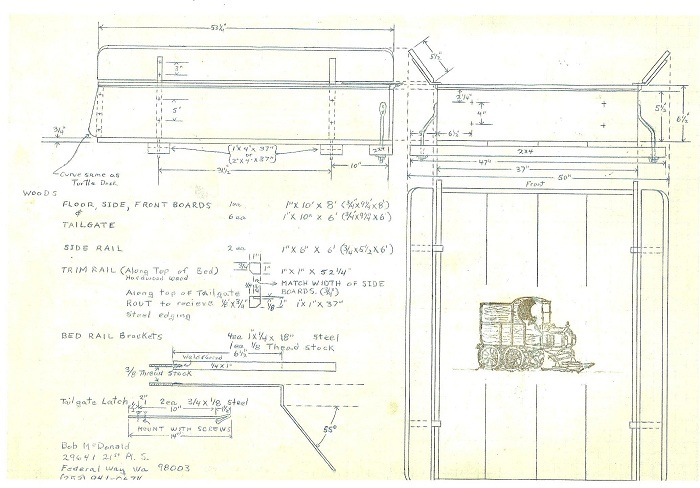 53¼"
5½"
3"
5"
2¼"
4"
5½
6½"
6½"
5"
3/4"
1"X 4"X 37"
or
2"X 4"X 37"
2x4
2x4
10"
31½"
47"
37"
50"
Front
Curve same as
Turtle Deck
WOODS
FLOOR, SIDE, FRONT BOARDS 1ea 1"X 10"X 8' (3/4"X9¼"X8')
& 6 ea 1"X 10"X 6' (3/4"X9¼"X6')
TAILGATE
SIDE RAIL 2 ea 1"X 6"X 6' (3/4X5½X6')
1"
3/4" 1"
TRIM RAIL (Along Top of Bed) 1"X 1"X 52¼"
Hardwood wood
MATCH WIDTH OF SIDE
BOARDS. (3/4")
Along top of Tailgate
ROUT to recieve 1/8"X 3/4" 1/8 1" 1"X 1"X 37"
Steel edging
BED RAIL Brackets 4ea 1"X 1/4 X 18" steel
1ea 3/8 Thead stock
6½"
Weld/Braced
1/4 X 1"
3/8 Thread Stock
Tailgate Latch 2ea 3/4 X 1/8 Steel
2"
10"
MOUNT WITH SCREWS
14"
55°
Bob McDonald
29641 21st Pl. S.
Federal Way Wa 98003